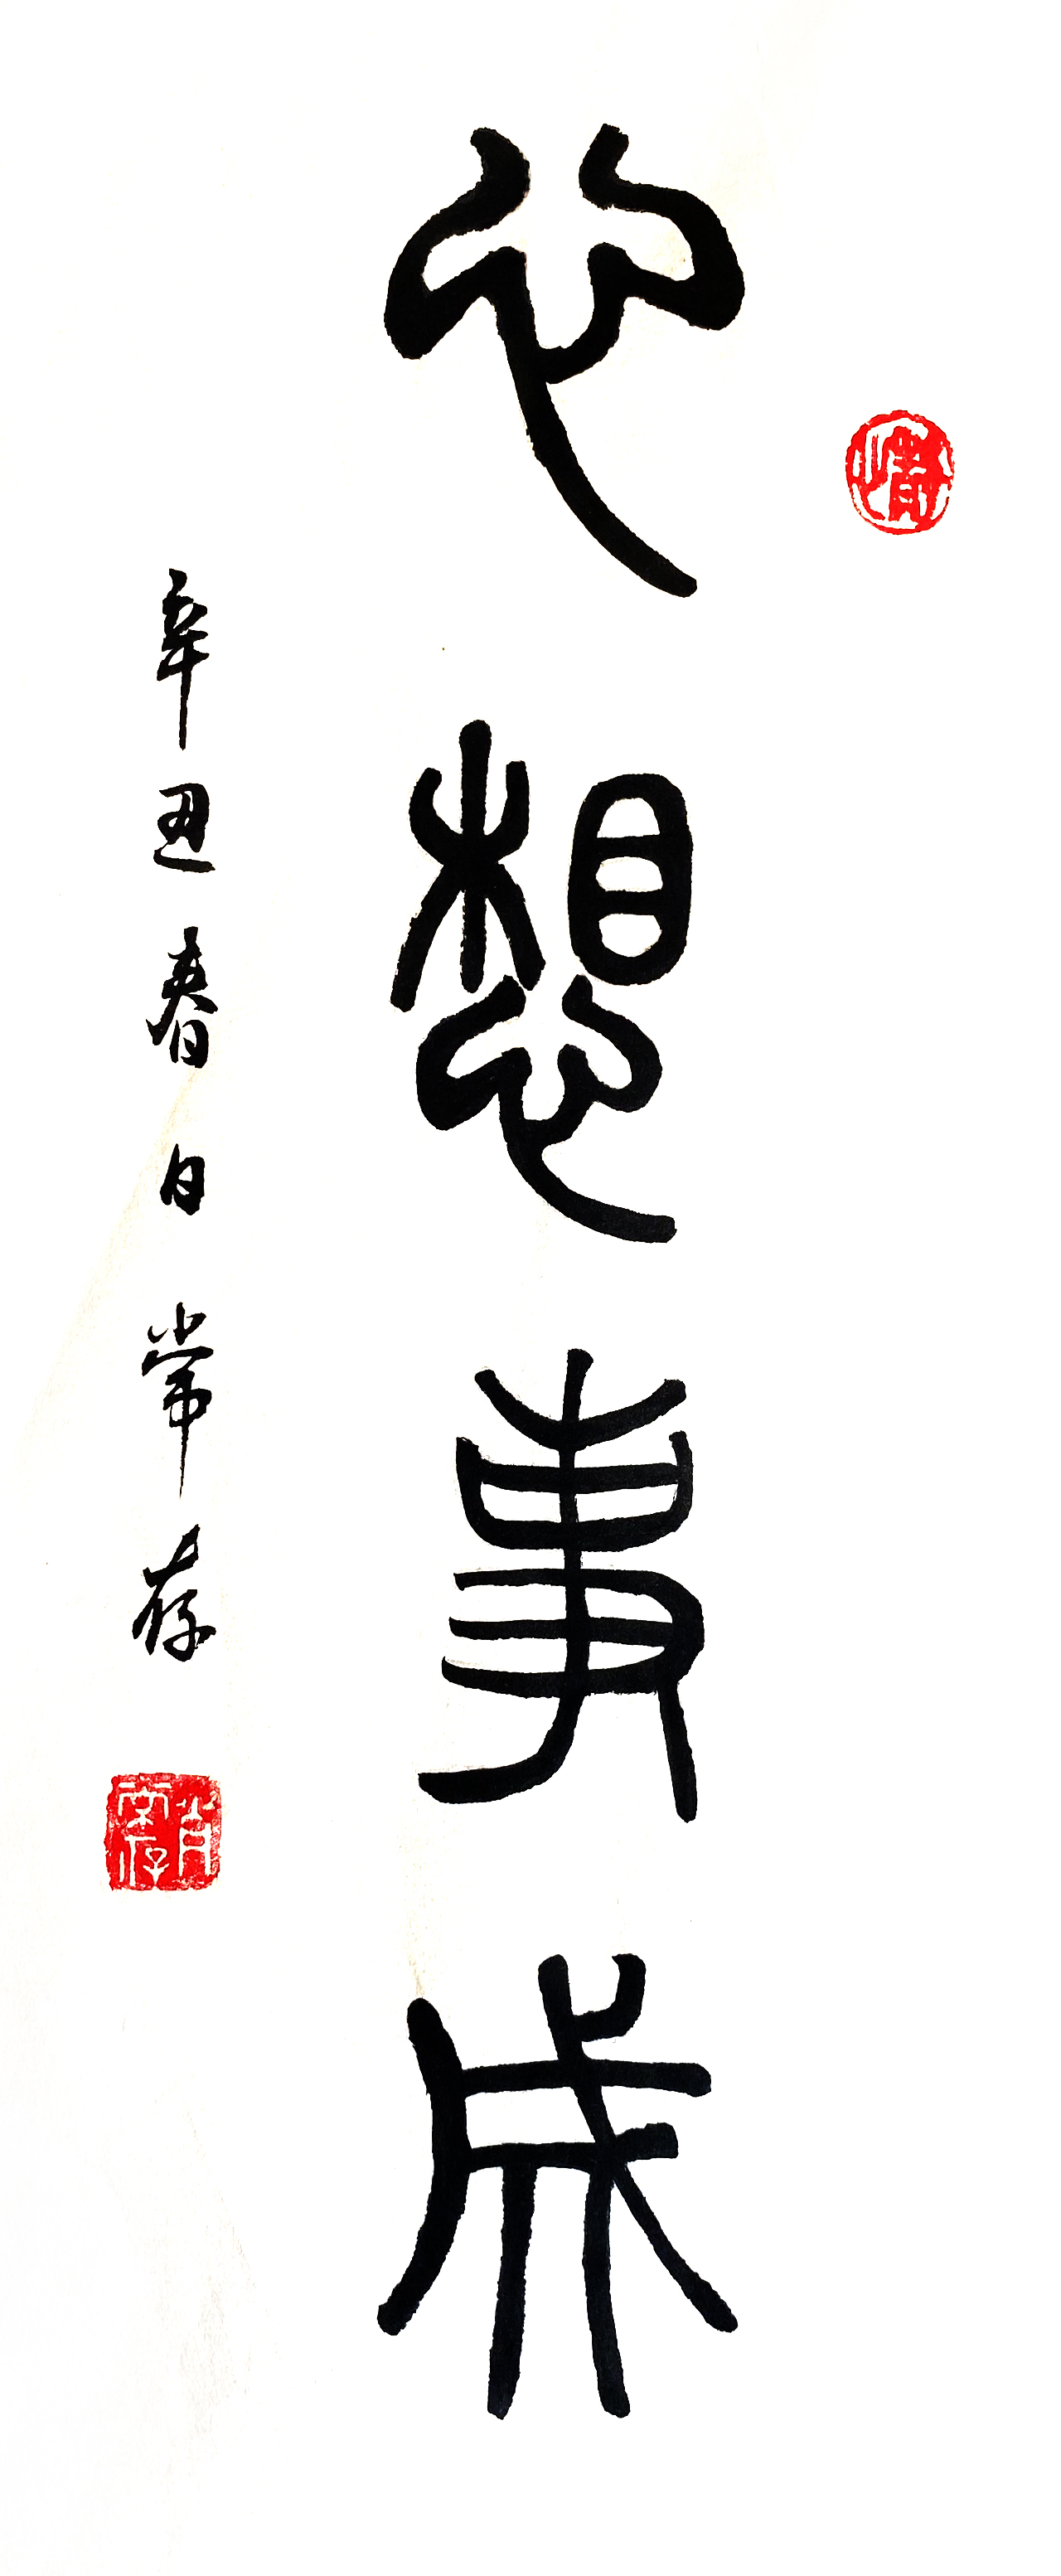 心想事成
辛丑春日常存
情